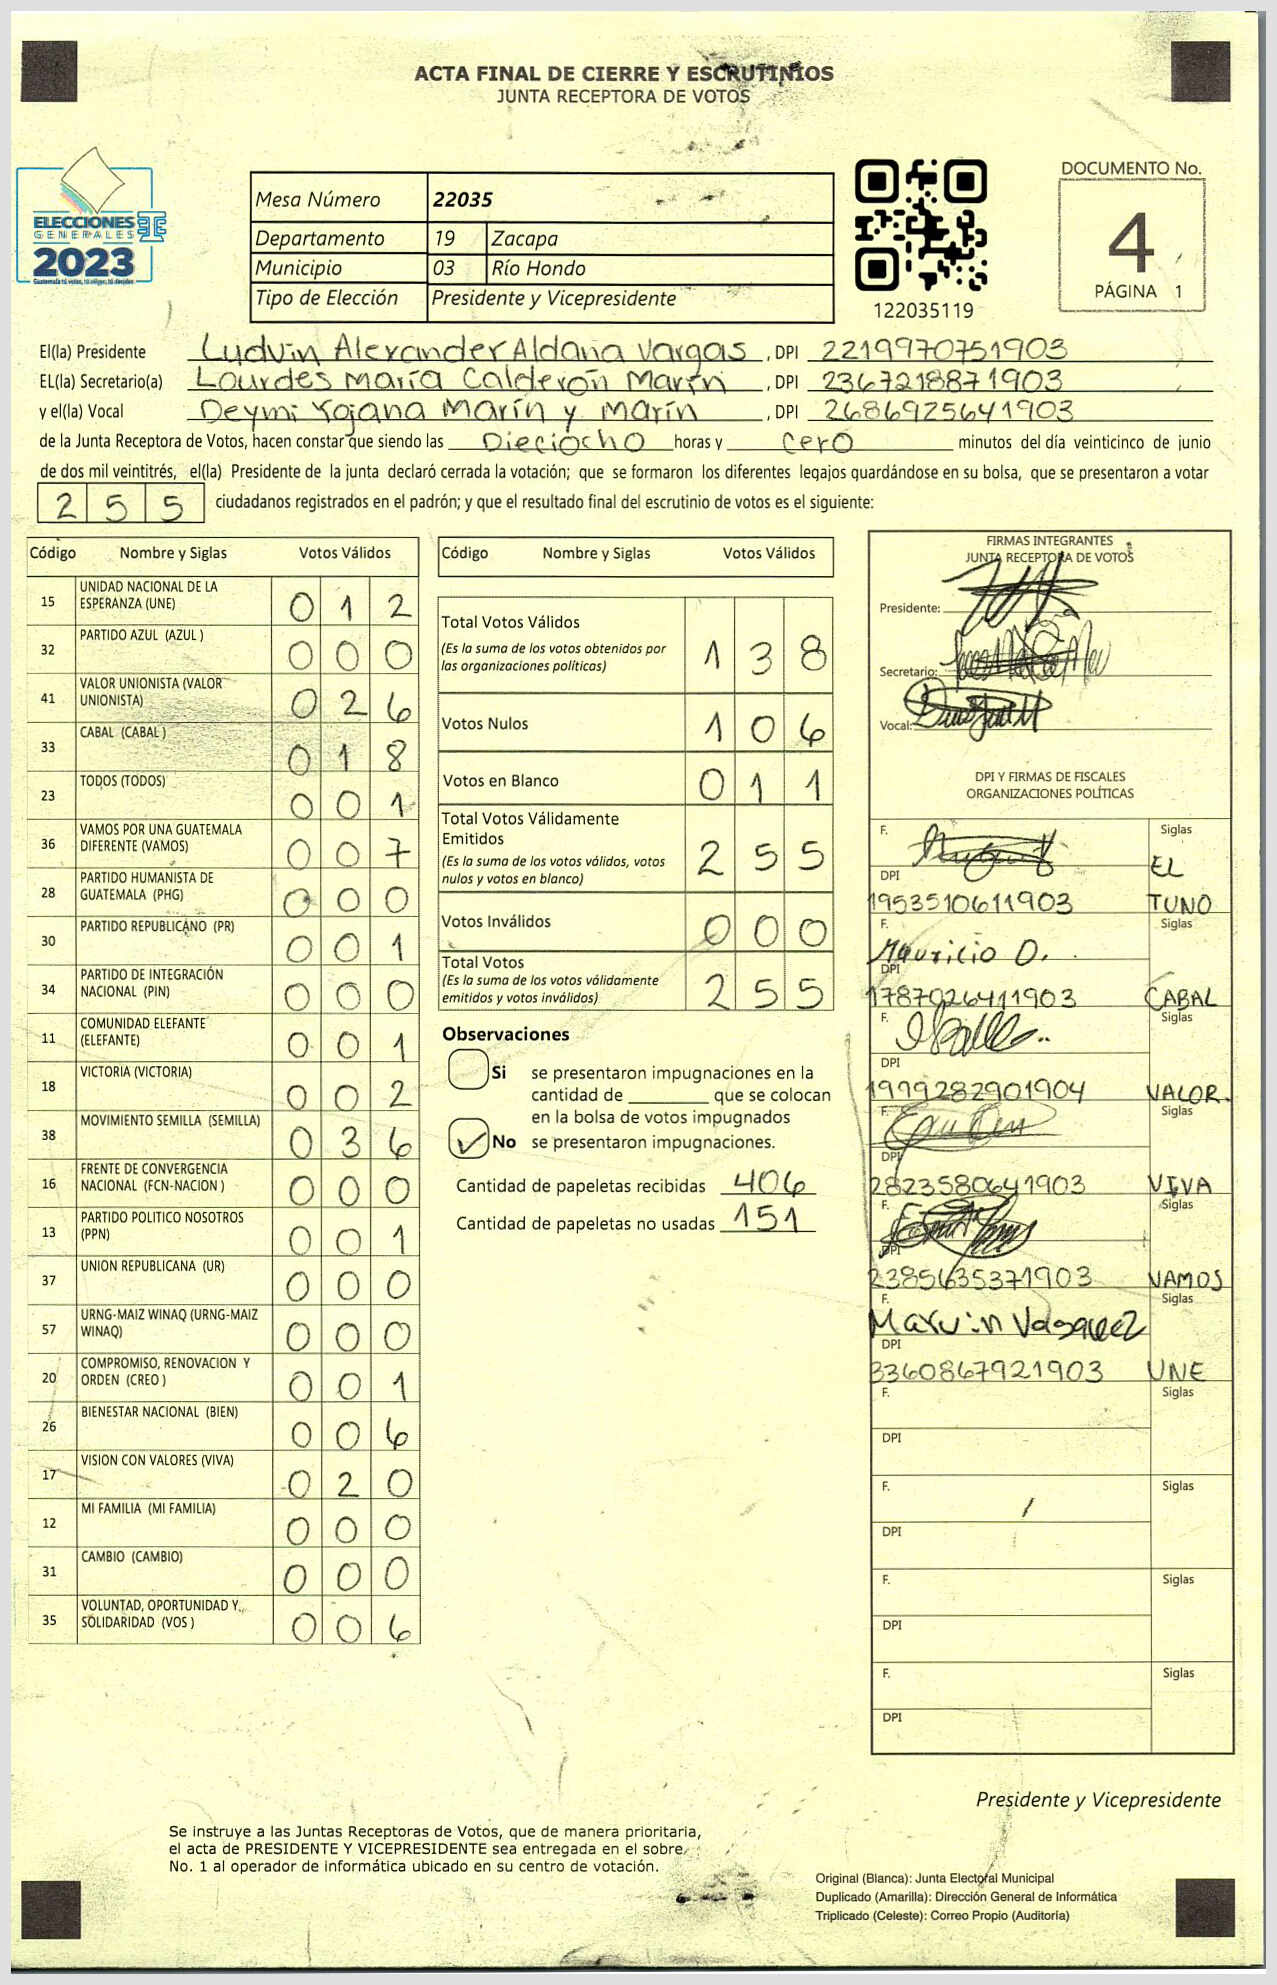 ACTA FINAL DE CIERRE Y ESCRUTINIOS
JUNTA RECEPTORA DE VOTOS
ELECCIONES
GENERALES
2023
Guatemala tú votas, tú eliges, tú decides
Mesa Número 22035
Departamento 19 Zacapa
Municipio 03 Río Hondo
Tipo de Elección Presidente y Vicepresidente
122035119
DOCUMENTO No.
4
PÁGINA 1
El(la) Presidente Ludvin Alexander Aldana Vargas, DPI 2219970751903
EL(la) Secretario(a) Lourdes María Calderón Marín, DPI 2367218871903
y el(la) Vocal Deymi Yojana Marín y Marín, DPI 2686925641903
de la Junta Receptora de Votos, hacen constar que siendo las Dieciocho horas y cero minutos del día veinticinco de junio
de dos mil veintitrés, el(la) Presidente de la junta declaró cerrada la votación; que se formaron los diferentes legajos guardándose en su bolsa, que se presentaron a votar
255 ciudadanos registrados en el padrón; y que el resultado final del escrutinio de votos es el siguiente:
Código Nombre y Siglas Votos Válidos
15 UNIDAD NACIONAL DE LA ESPERANZA (UNE) 012
32 PARTIDO AZUL (AZUL ) 000
41 VALOR UNIONISTA (VALOR UNIONISTA) 026
33 CABAL (CABAL ) 018
23 TODOS (TODOS) 001
36 VAMOS POR UNA GUATEMALA DIFERENTE (VAMOS) 007
28 PARTIDO HUMANISTA DE GUATEMALA (PHG) 000
30 PARTIDO REPUBLICANO (PR) 001
34 PARTIDO DE INTEGRACIÓN NACIONAL (PIN) 000
11 COMUNIDAD ELEFANTE (ELEFANTE) 001
18 VICTORIA (VICTORIA) 002
38 MOVIMIENTO SEMILLA (SEMILLA) 036
16 FRENTE DE CONVERGENCIA NACIONAL (FCN-NACION ) 000
13 PARTIDO POLITICO NOSOTROS (PPN) 001
37 UNION REPUBLICANA (UR) 000
57 URNG-MAIZ WINAQ (URNG-MAIZ WINAQ) 000
20 COMPROMISO, RENOVACION Y ORDEN (CREO ) 001
26 BIENESTAR NACIONAL (BIEN) 006
17 VISION CON VALORES (VIVA) 020
12 MI FAMILIA (MI FAMILIA) 000
31 CAMBIO (CAMBIO) 000
35 VOLUNTAD, OPORTUNIDAD Y SOLIDARIDAD (VOS ) 006
Código Nombre y Siglas Votos Válidos
Total Votos Válidos 138
(Es la suma de los votos obtenidos por
las organizaciones políticas)
Votos Nulos 106
Votos en Blanco 011
Total Votos Válidamente
Emitidos 255
(Es la suma de los votos válidos, votos
nulos y votos en blanco)
Votos Inválidos 000
Total Votos 255
(Es la suma de los votos válidamente
emitidos y votos inválidos)
Observaciones
Si se presentaron impugnaciones en la
cantidad de ________ que se colocan
en la bolsa de votos impugnados
No se presentaron impugnaciones.
Cantidad de papeletas recibidas 406
Cantidad de papeletas no usadas 151
FIRMAS INTEGRANTES
JUNTA RECEPTORA DE VOTOS
Presidente:
Secretario:
Vocal:
DPI Y FIRMAS DE FISCALES
ORGANIZACIONES POLÍTICAS
F. Siglas
DPI EL
1953510611903 TUNO
F. Siglas
Mauricio O.
DPI
1787026411903 CABAL
F. Siglas
DPI
1999282901904 VALOR.
F. Siglas
DPI
2823580641903 VIVA
F. Siglas
DPI
2385635371903 VAMOS
F. Siglas
Marvin Vasquez
DPI
3360867921903 UNE
F. Siglas
DPI
F. Siglas
DPI
F. Siglas
DPI
F. Siglas
DPI
Presidente y Vicepresidente
Se instruye a las Juntas Receptoras de Votos, que de manera prioritaria,
el acta de PRESIDENTE Y VICEPRESIDENTE sea entregada en el sobre
No. 1 al operador de informática ubicado en su centro de votación.
Original (Blanca): Junta Electoral Municipal
Duplicado (Amarilla): Dirección General de Informática
Triplicado (Celeste): Correo Propio (Auditoría)